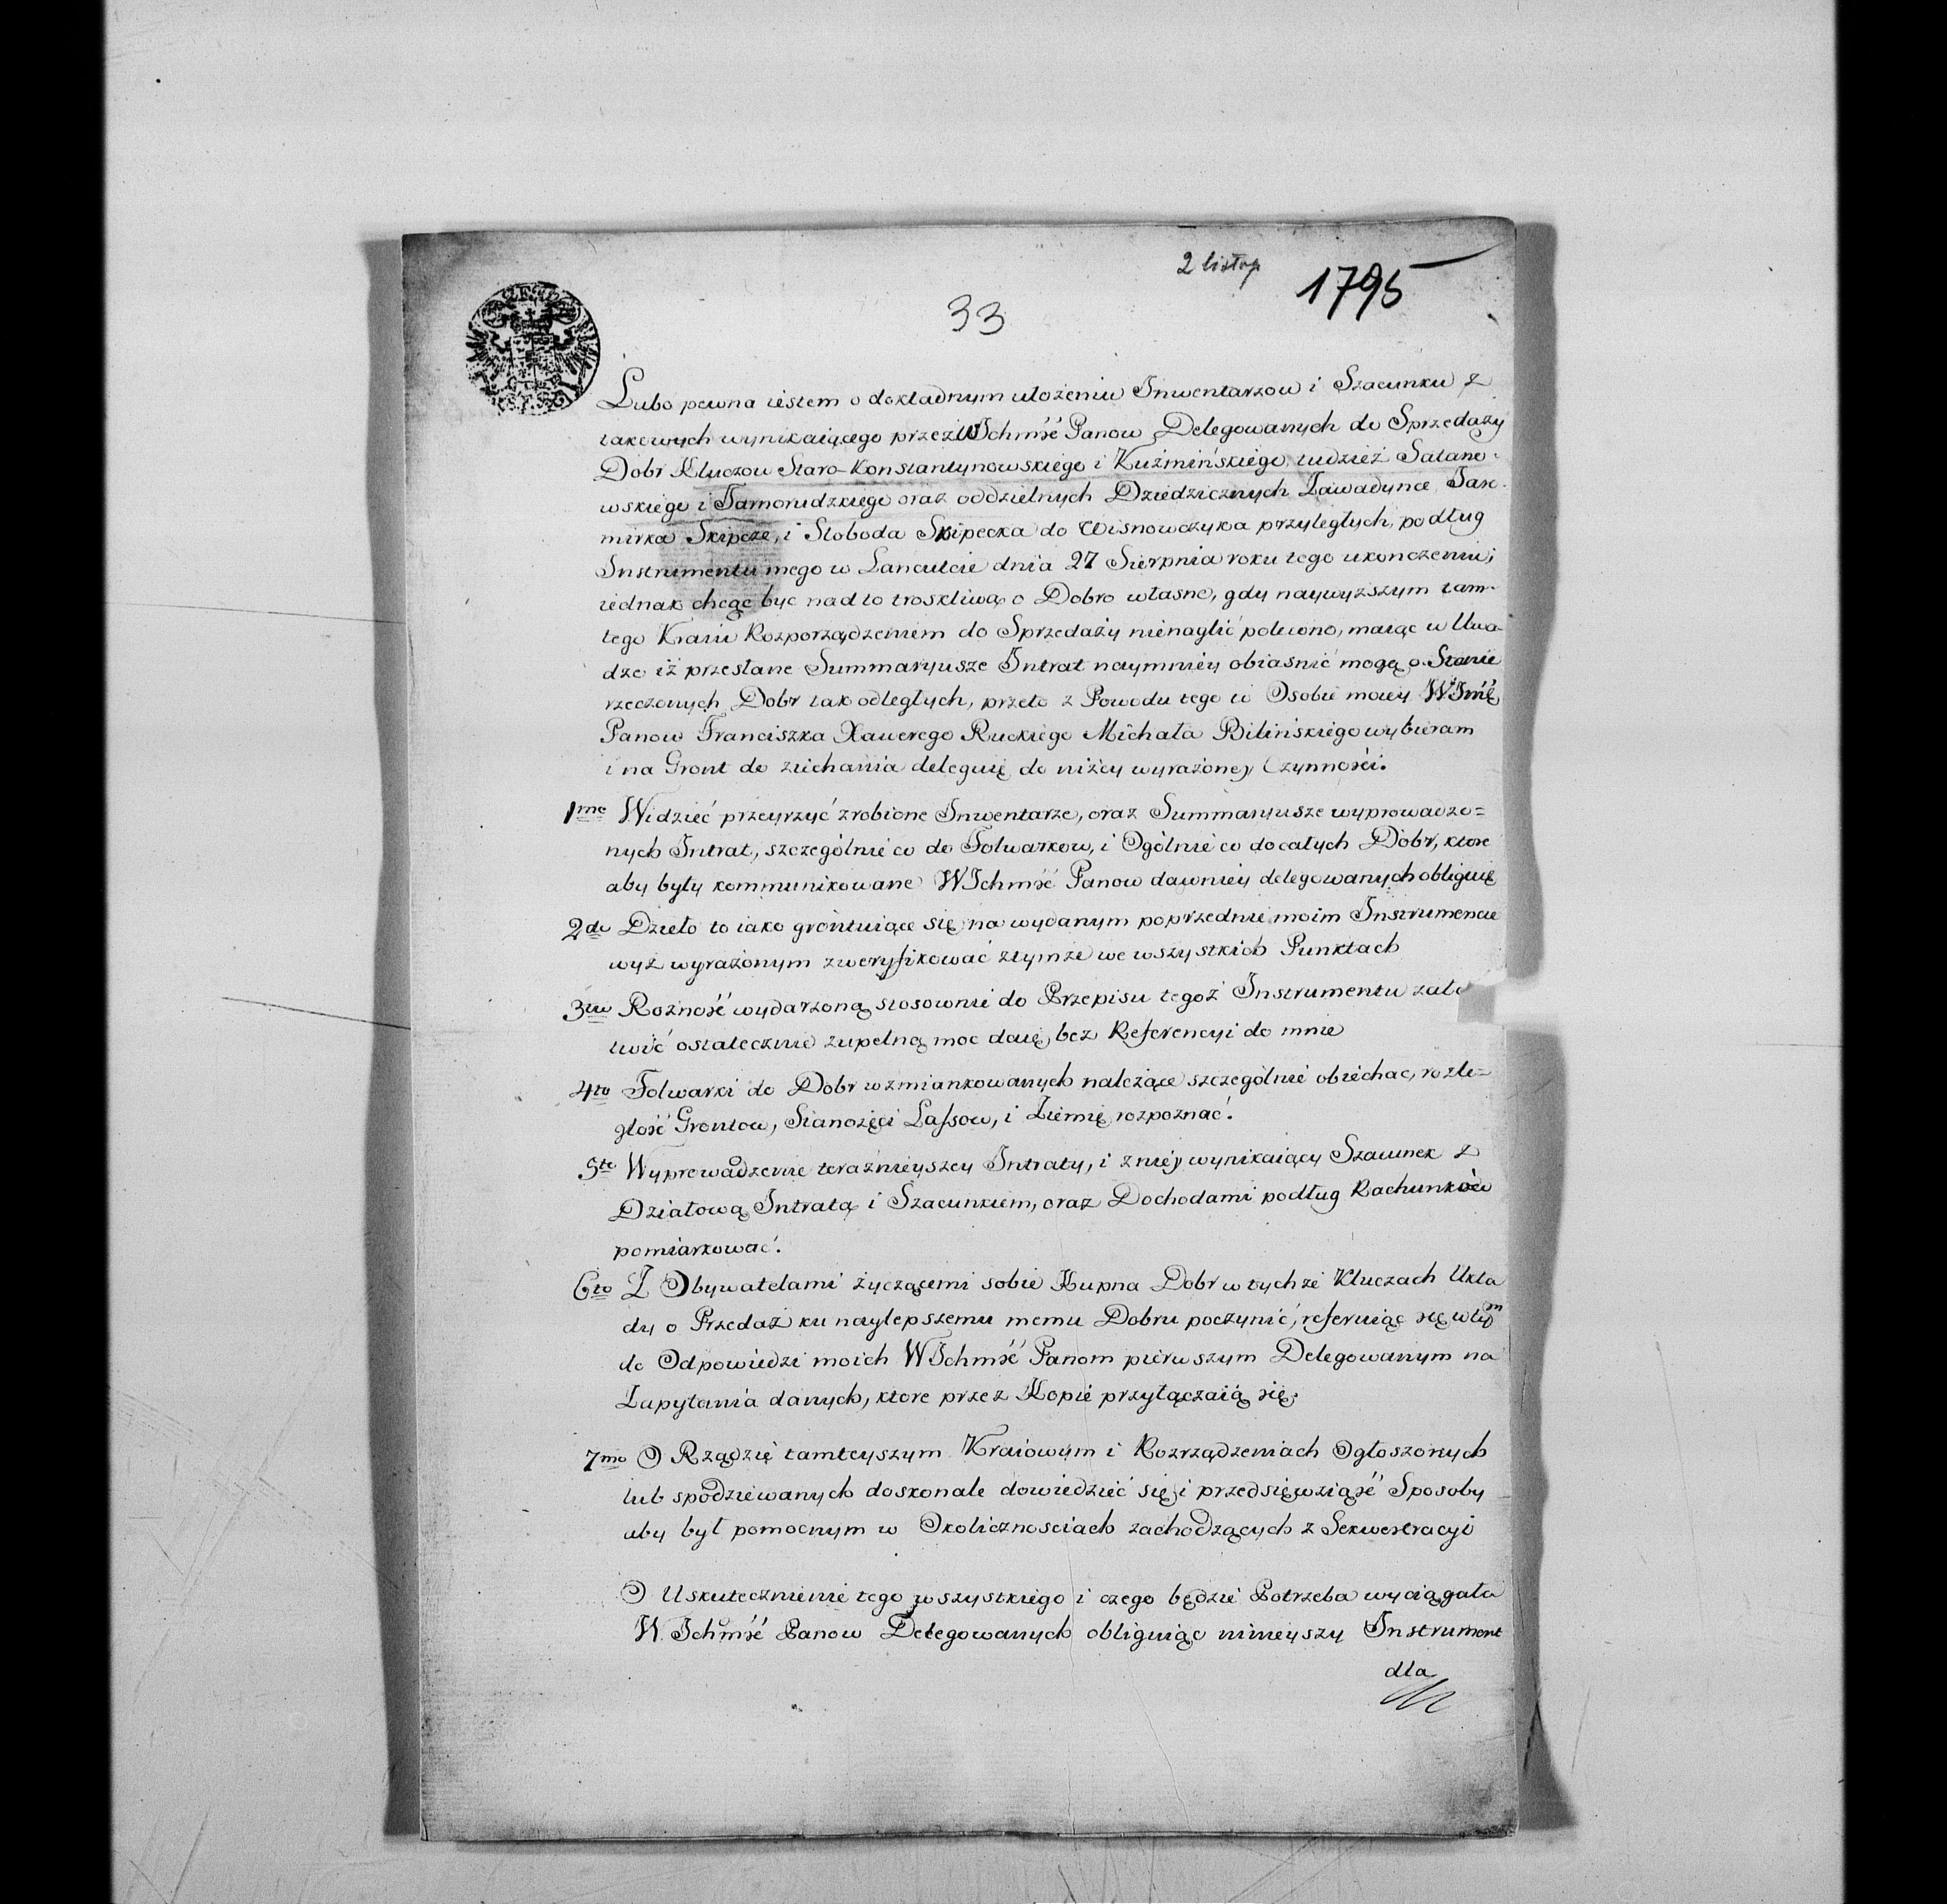 2 listop
1795
33
Lubo pewna iestem o dokładnym ułożeniu Inwentarzow i Szacunku z
takowych wynikaiącego przez WJchmść Panow Delegowanych do Sprzedaży
Dobr Kluczow Staro-Konstantynowskiego i Kuźmińskiego, tudzież Satano-
wskiego i Tarnorudzkiego oraz oddzielnych Dziedzicznych Zawadynce, Jaro-
mirka Skipcze, i Słoboda Skipecka do Wisnowczyka przyległych, podług
Instrumentu mego w Lancutcie dnia 27 Sierpnia roku tego ukonczeniu;
iednak chcąc być nad to troskliwą o Dobro własne, gdy naywyższym tam-
tego Kraiu Rozporządzeniem do Sprzedaży nienaglić polecono, maiąc w Uwa-
dze iż przesłane Summaryusze Intrat naymniey obiasnić mogą o Stanie
rzeczonych Dobr tak odległych, przeto z Powodu tego w Osobie moiey WJmć
Panow Franciszka Xawerego Ruckiego Michała Bilińskiego wybieram
i na Gront do ziechania deleguię do niżey wyrażoney Czynności.
1mo Widzieć przeyrzyć zrobione Inwentarze, oraz Summaryusze wyprowadzo=
nych Intrat, szczególnie co do Folwarkow, i Ogólnie co do całych Dobr, ktore
aby były kommunikowane WJchmść Panow dawniey delegowanych obliguię
2do Dzieło to iako grontuiące się na wydanym poprzednie moim Instrumencie
wyż wyrażonym zweryfikować ztymże we wszystkich Punktach
3tio Rożność wydarzoną stosownie do Przepisu tegoż Instrumentu zała
twić ostatecznie zupełną moc daię, bez Referencyi do mnie
4to Folwarki do Dobr wzmiankowanych należące szczególnie obiechac, rozle=
głość Grontow, Sianożęci Lassow, i Ziemię rozpoznać.
5to Wyprowadzenie teraźnieyszey Intraty, i zniey wynikaiący Szacunek z
Działową Intratą i Szacunkiem, oraz Dochodami podług Rachunków
pomiarkować.
6to Z Obywatelami życzącemi sobie Kupna Dobr w tychże Kluczach Ukła
dy o Przedaż ku naylepszemu memu Dobru poczynić, referuiąc się w tym
do Odpowiedzi moich WJchmść Panom pierwszym Delegowanym na
Zapytania danych, ktore przez Kopie przyłączaią się.
7mo O Rządzie tamteyszym Kraiowym i Rozrządzeniach Ogłoszonych
lub spodziewanych doskonale dowiedzieć się, i przedsięwziąść Sposoby
aby był pomocnym w Okolicznosciach zachodzących z Sekwestracyi
O Uskutecznienie tego wszystkiego i czego będzie Potrzeba wyciągała
W. Jchmść Panow Delegowanych obliguiąc ninieyszy Instrument
dla